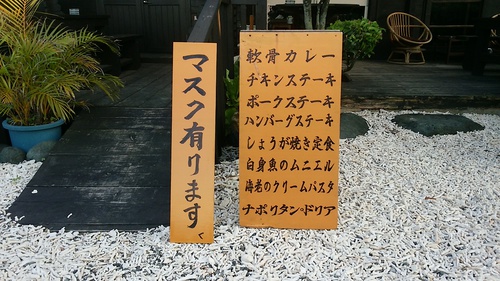 マスク有ります
軟骨カレー
チキンステーキ
ポークステーキ
ハンバーグステーキ
しょうが焼き定食
白身魚のムニエル
海老のクリームパスタ
ナポリタン・ドリア